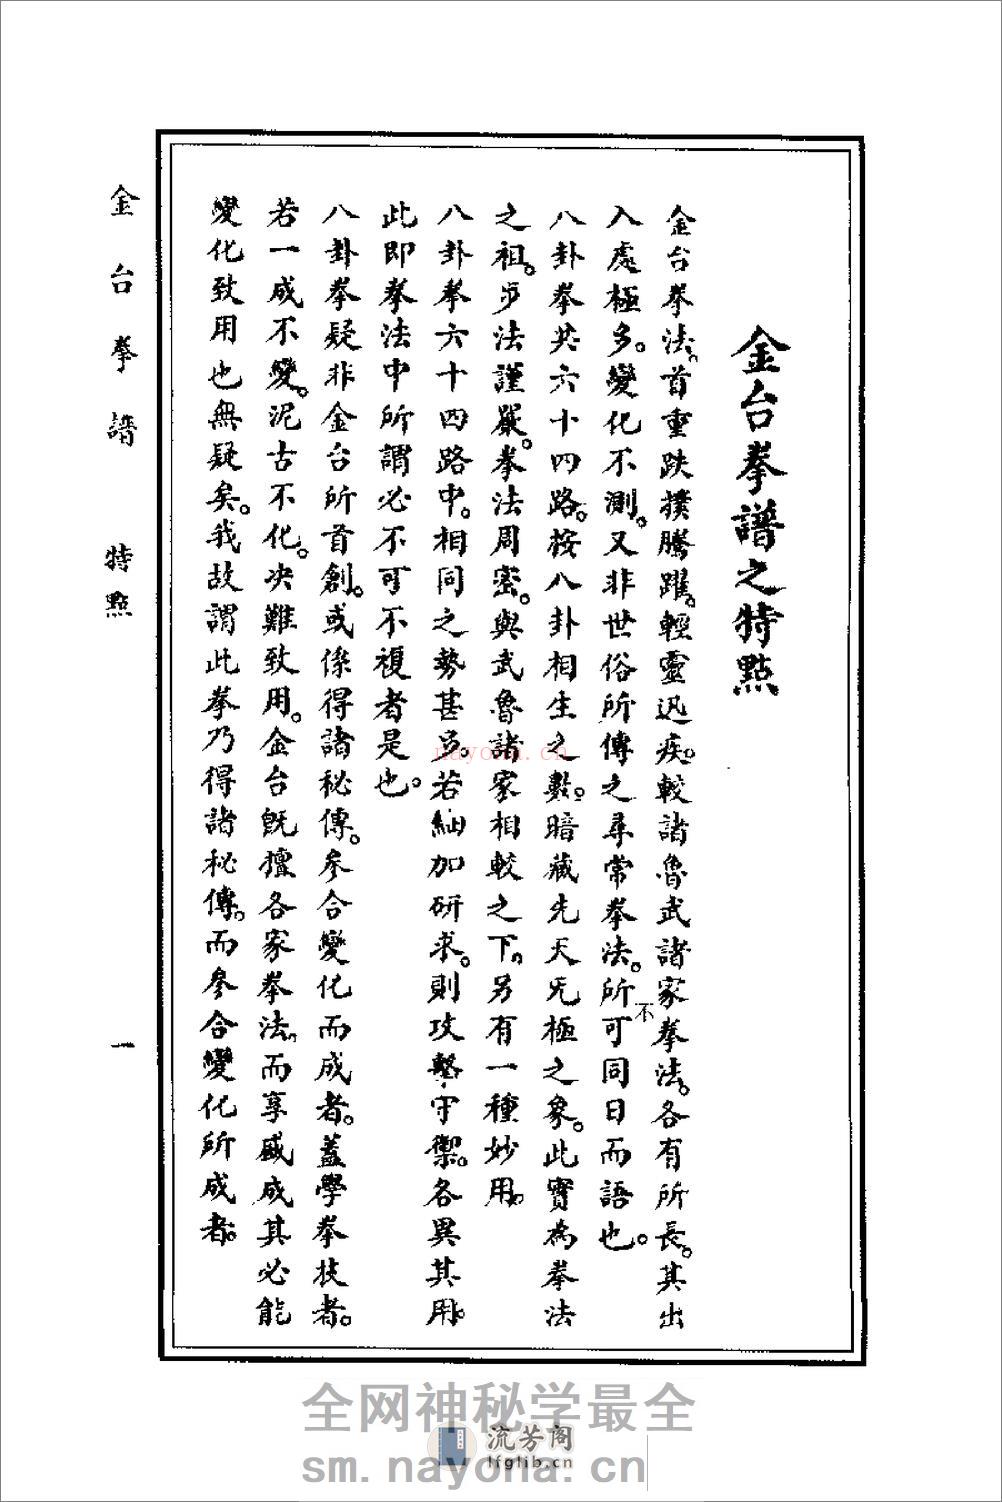 金台拳譜之特點
金台拳法。首重跌撲騰躍。輕靈迅疾。較諸魯武諸家拳法。各有所長。其出
入處極多。變化不測。又非世俗所傳之尋常拳法。所不可同日而語也。
八卦拳共六十四路。按八卦相生之數。暗藏先天无極之象。此實為拳法
之祖。步法謹嚴。拳法周密。與武魯諸家相較之下。另有一種妙用。
八卦拳六十四路中。相同之勢甚多。若細加研求。則攻擊守禦。各異其用。
此即拳法中所謂必不可不複者是也。
八卦拳疑非金台所首創。或係得諸秘傳。參合變化而成者。蓋學拳技者。
若一成不變。泥古不化。决難致用。金台既擅各家拳法。而享盛成其必能
變化致用也無疑矣。我故謂此拳乃得諸秘傳。而參合變化所成者。
金台拳譜 特點 一
nayona.cn
全网神秘学最全
流芳阁
lfglib.cn
sm.nayona.cn